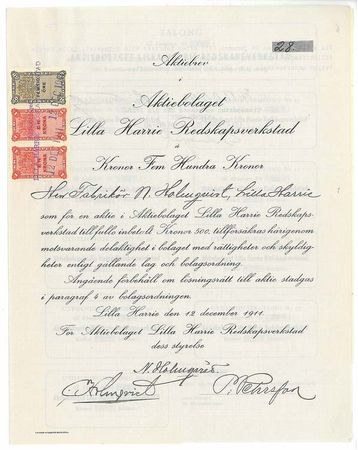 28
Aktiebrev
i
Aktiebolaget
Lilla Harrie Redskapsverkstad
å
Kronor Fem Hundra Kronor
Herr Fabrikör N. Holmqvist, Lilla Harrie
som för en aktie i Aktiebolaget Lilla Harrie Redskaps-
verkstad tillfullo inbetalt Kronor 500, tillförsäkras härigenom
motsvarande delaktighet i bolaget med rättigheter och skyldig-
heter enligt gällande lag och bolagsordning.
Angående förbehåll om lösningsrätt till aktie stadgas
i paragraf 4 av bolagsordningen.
Lilla Harrie den 12 december 1911.
För Aktiebolaget Lilla Harrie Redskapsverkstad
dess styrelse
N. Holmqvist
P. Pehrsson